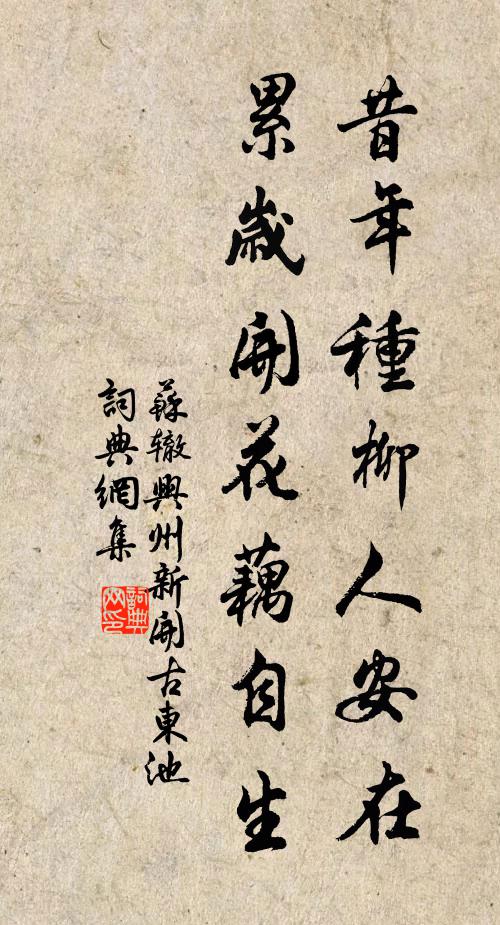 昔年種柳人安在
累歲開花藕自生
蘇辙興州新開古東池
詞典網集
詞典网印